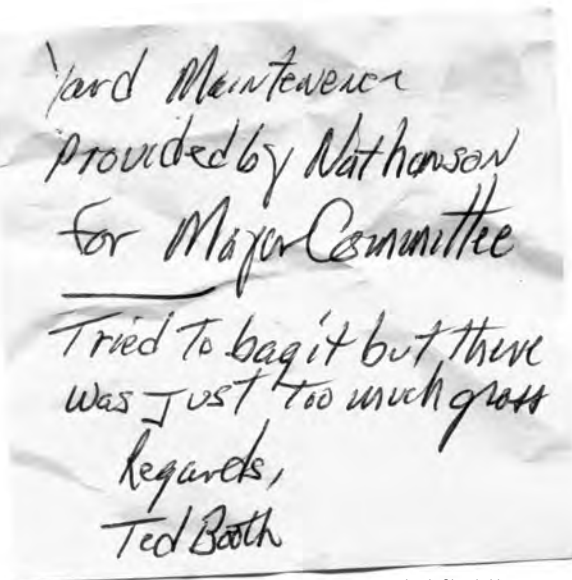 Yard Maintenence
Provided by Nathanson
for Mayor Committee
Tried To bag it but there
was Just Too much grass
Regards,
Ted Booth